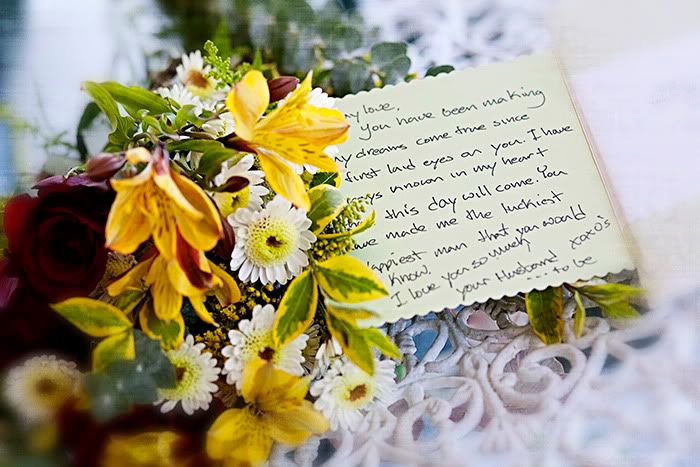 my love,
you have been making
my dreams come true since
first laid eyes on you. I have
ys known in my heart
this day will come. You
ve made me the luckiest
appiest man that you would
know.
I love you so much xoxo's
your Husband
.... to be